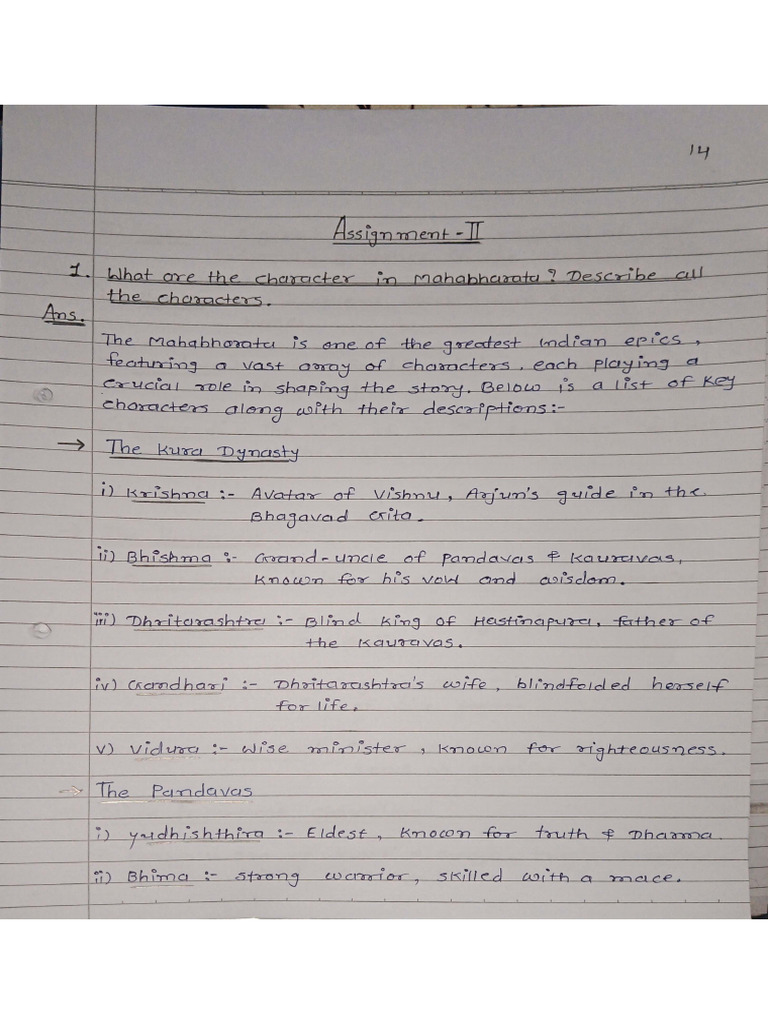 14
Assignment - II
1. What are the character in Mahabharata? Describe all
the characters.
Ans.
The Mahabharata is one of the greatest Indian epics,
featuring a vast array of characters, each playing a
crucial role in shaping the story. Below is a list of key
characters along with their descriptions:-
→ The Kura Dynasty
i) Krishna :- Avatar of Vishnu, Arjun's guide in the
Bhagavad Gita.
ii) Bhishma :- Grand-uncle of Pandavas & Kauravas,
Known for his vow and wisdom.
iii) Dhritarashtra :- Blind King of Hastinapura, father of
the Kauravas.
iv) Gandhari :- Dhritarashtra's wife, blindfolded herself
for life.
v) Vidura :- Wise minister, Known for righteousness.
→ The Pandavas
i) Yudhishthira :- Eldest, Known for truth & Dharma.
ii) Bhima :- Strong warrior, skilled with a mace.